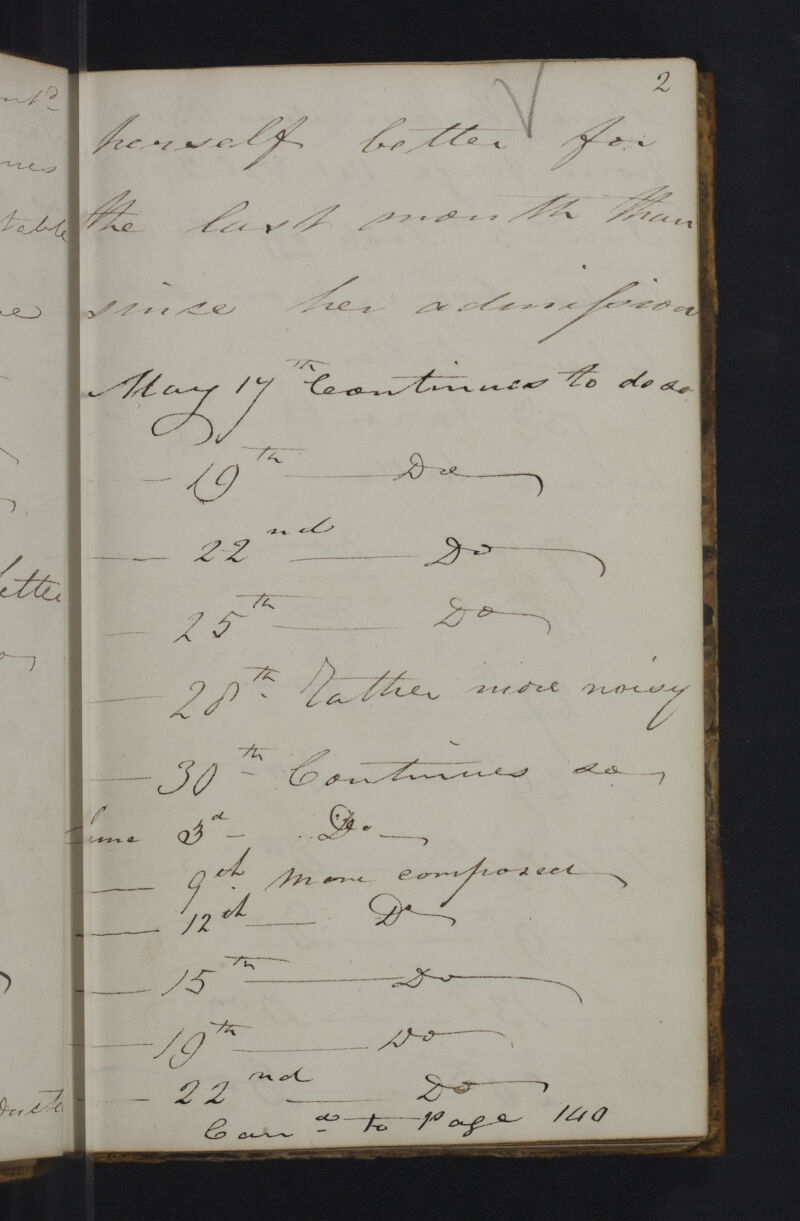 2
herself better for
the last month than
since her admiſsion
May 17th Continues to do so
— 19th — Do
— 22nd — Do
— 25th — Do
— 28th Rather more noisy
— 30th Continues so
June 3d — Do —
— 9th More composed
— 12th — Do
— 15th — Do
— 19th — Do
— 22nd — Do
Carrd to Page 140